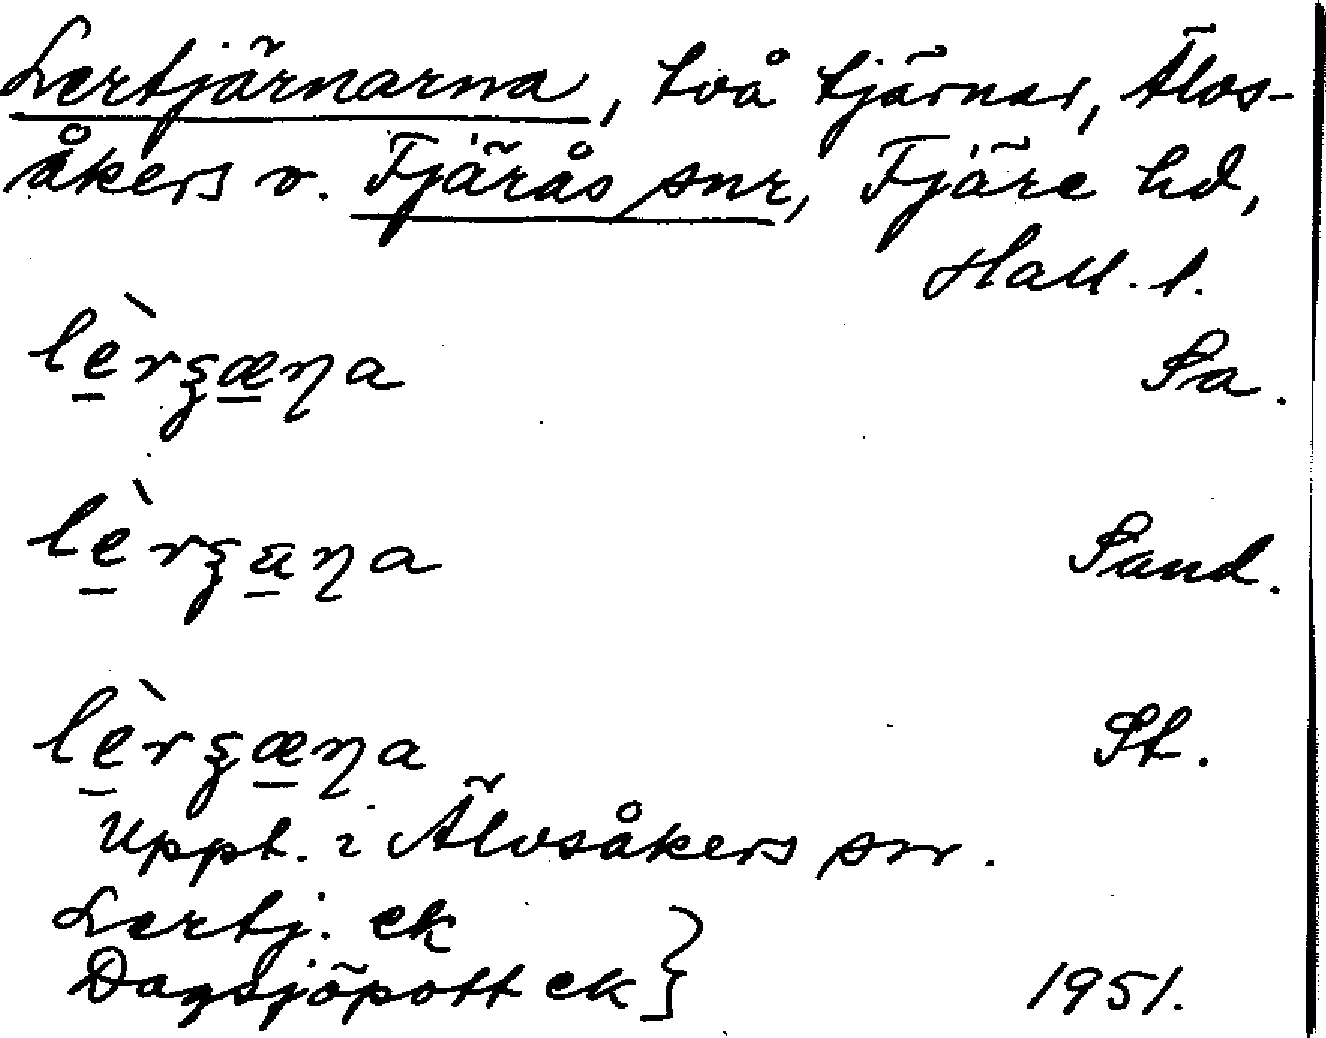 Lertjärnarna, två tjärnar, Älvs-
åkers o. Fjärås snr, Fjäre hd,
Hall. l.
lèrʒæŋa Sa.
lèrʒäŋa Sand.
lèrʒæŋa St.
Uppt. i Älvsåkers sn.
Lertj. ek
Dagsjöpott ek} 1951.